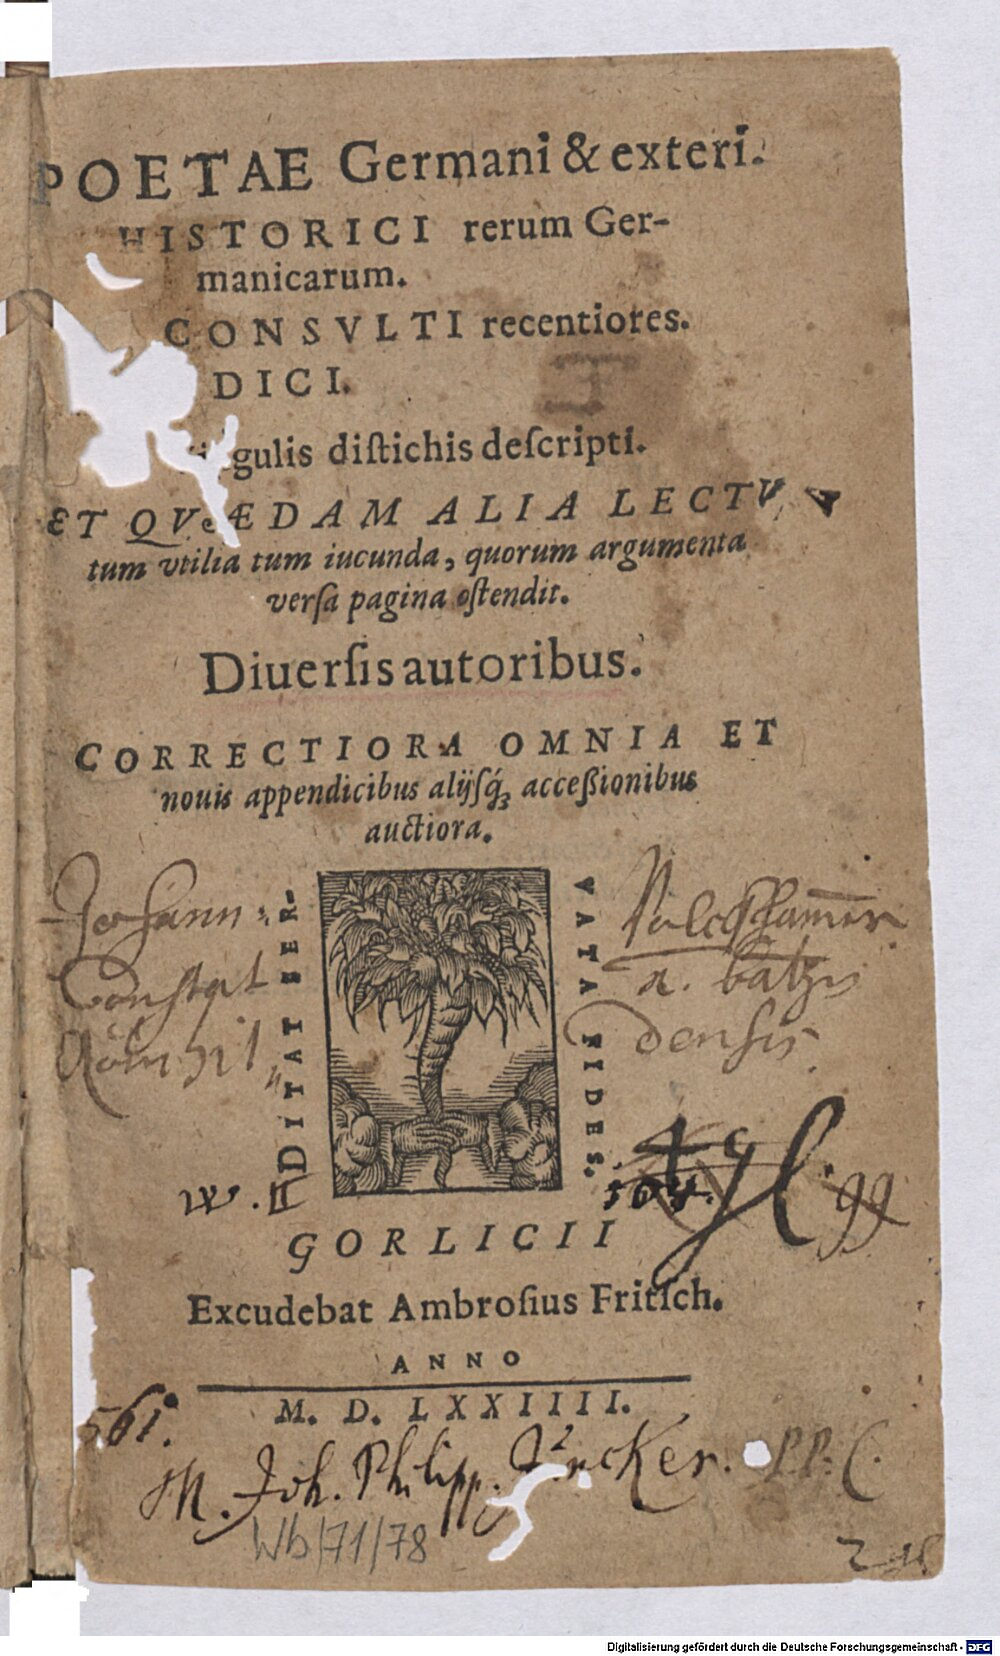 POETAE Germani & exteri.
HISTORICI rerum Ger-
manicarum.
CONSVLTI recentiores.
DICI.
gulis diſtichis deſcripti.
ET QVÆDAM ALIA LECTV
tum vtilia tum iucunda, quorum argumenta
verſa pagina oſtendit.
Diuerſis autoribus.
CORRECTIORA OMNIA ET
nouis appendicibus alijſq́ꝫ acceßionibus
auctiora.
DITAT SER-
VATA FIDES.
Johann
Constat
a.
densis
W.
GORLICII
Excudebat Ambroſius Fritſch.
ANNO
M. D. LXXIIII.
561.
M. Joh. Philipp. P.P.C.
Wb/71/78
Digitalisierung gefördert durch die Deutsche Forschungsgemeinschaft - DFG